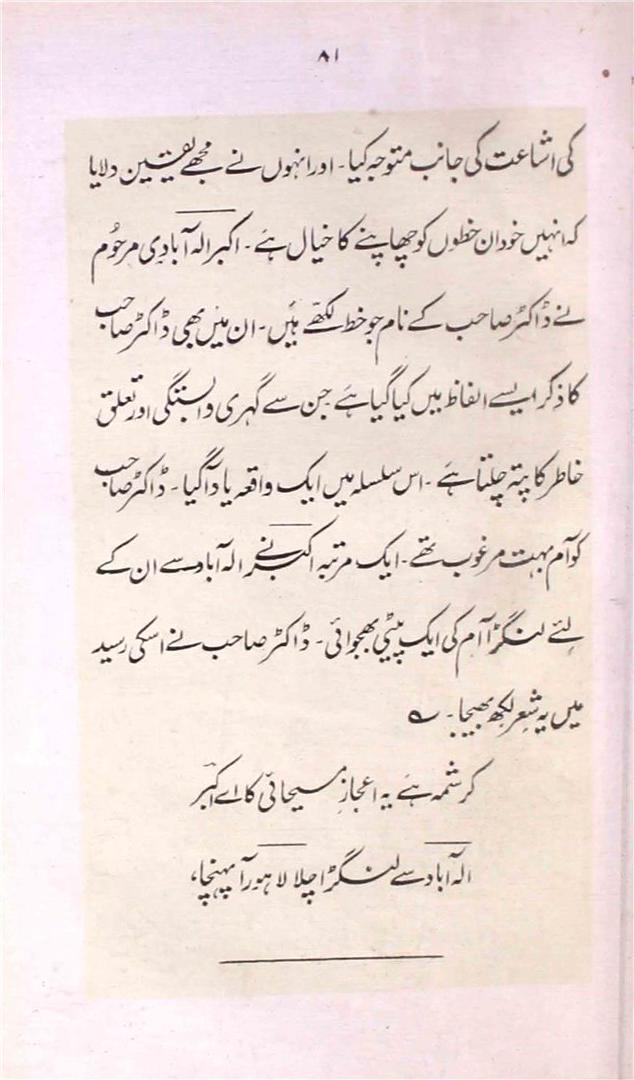 ۸۱
کی اشاعت کی جانب متوجہ کیا۔ اور انہوں نے مجھے یقین دلایا
کہ انہیں خود ان خطوں کو چھاپنے کا خیال ہے۔ اکبر الہ آبادی مرحوم
نے ڈاکٹر صاحب کے نام جو خط لکھے ہیں۔ ان میں بھی ڈاکٹر صاحب
کا ذکر ایسے الفاظ میں کیا گیا ہے جن سے گہری وابستگی اور تعلق
خاطر کا پتہ چلتا ہے۔ اس سلسلہ میں ایک واقعہ یاد آگیا۔ ڈاکٹر صاحب
کو آم بہت مرغوب تھے۔ ایک مرتبہ اکبر نے الہ آباد سے ان کے
لئے لنگڑا آم کی ایک پیٹی بھجوائی۔ ڈاکٹر صاحب نے اسکی رسید
میں یہ شعر لکھ بھیجا۔ ؎
کرشمہ ہے یہ اعجازِ مسیحائی کا اے اکبرؔ
الہ آباد سے لنگڑا چلا لاہور آ پہنچا،